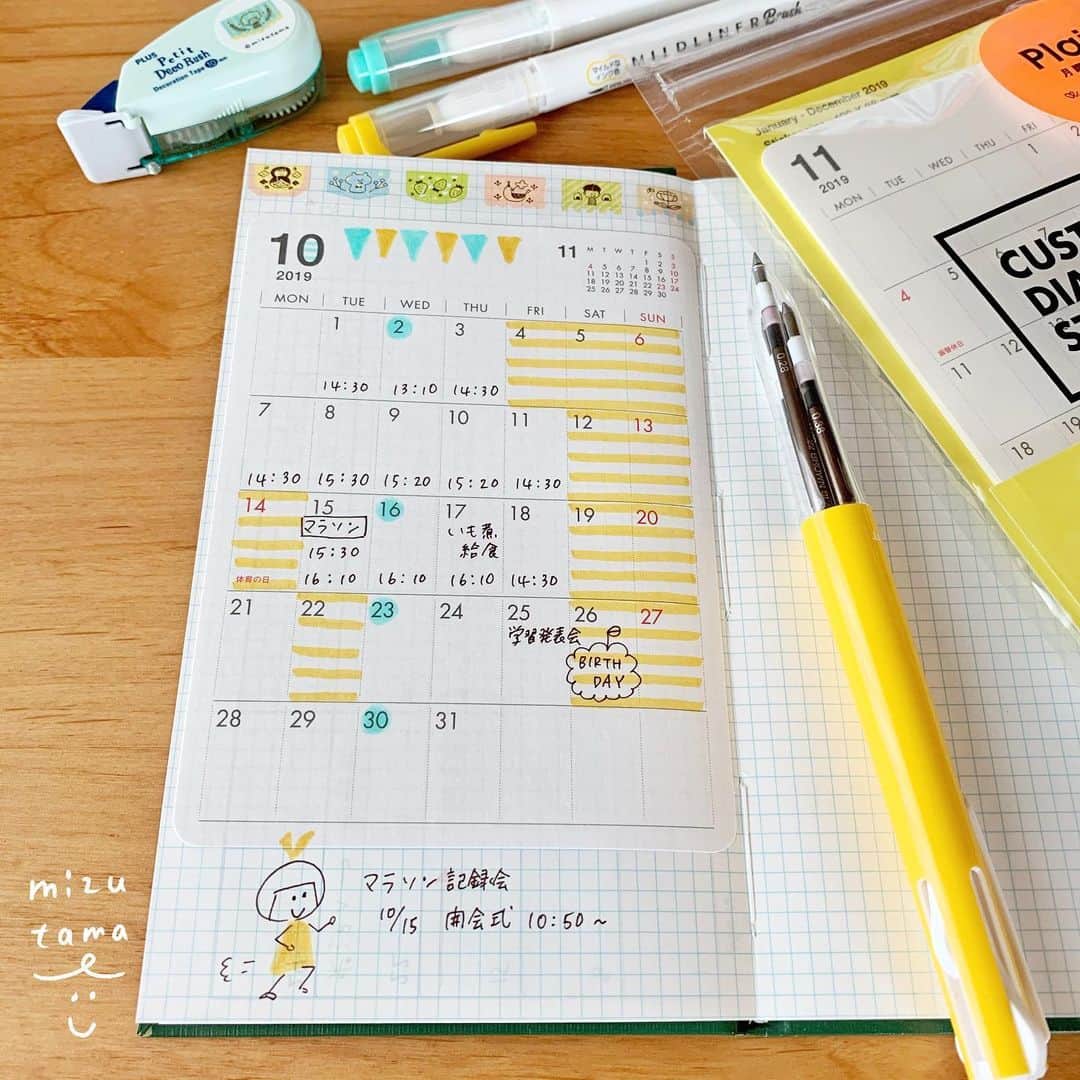 PLUS
Petit
Deco Rush
Decoration Tape
©mizutama
MILDLINER Brush
マイルドな
January - December 2019
11
2019
MON TUE WED THU FRI
1
4 5 6 7
11 12
18 19
振替休日
CUST
DIA
ST
Plai
月
10
2019
11
M T W T F S S
1 2 3
4 5 6 7 8 9 10
11 12 13 14 15 16 17
18 19 20 21 22 23 24
25 26 27 28 29 30
MON TUE WED THU FRI SAT SUN
1 2 3 4 5 6
14:30 13:10 14:30
7 8 9 10 11 12 13
14:30 15:30 15:20 15:20 14:30
14 15 16 17 18 19 20
マラソン いも煮
15:30 給食
体育の日 16:10 16:10 16:10 14:30
21 22 23 24 25 26 27
学習発表会
BIRTH
DAY
28 29 30 31
マラソン記録会
10/15 開会式 10:50~
0.28
0.38
mizu
tama